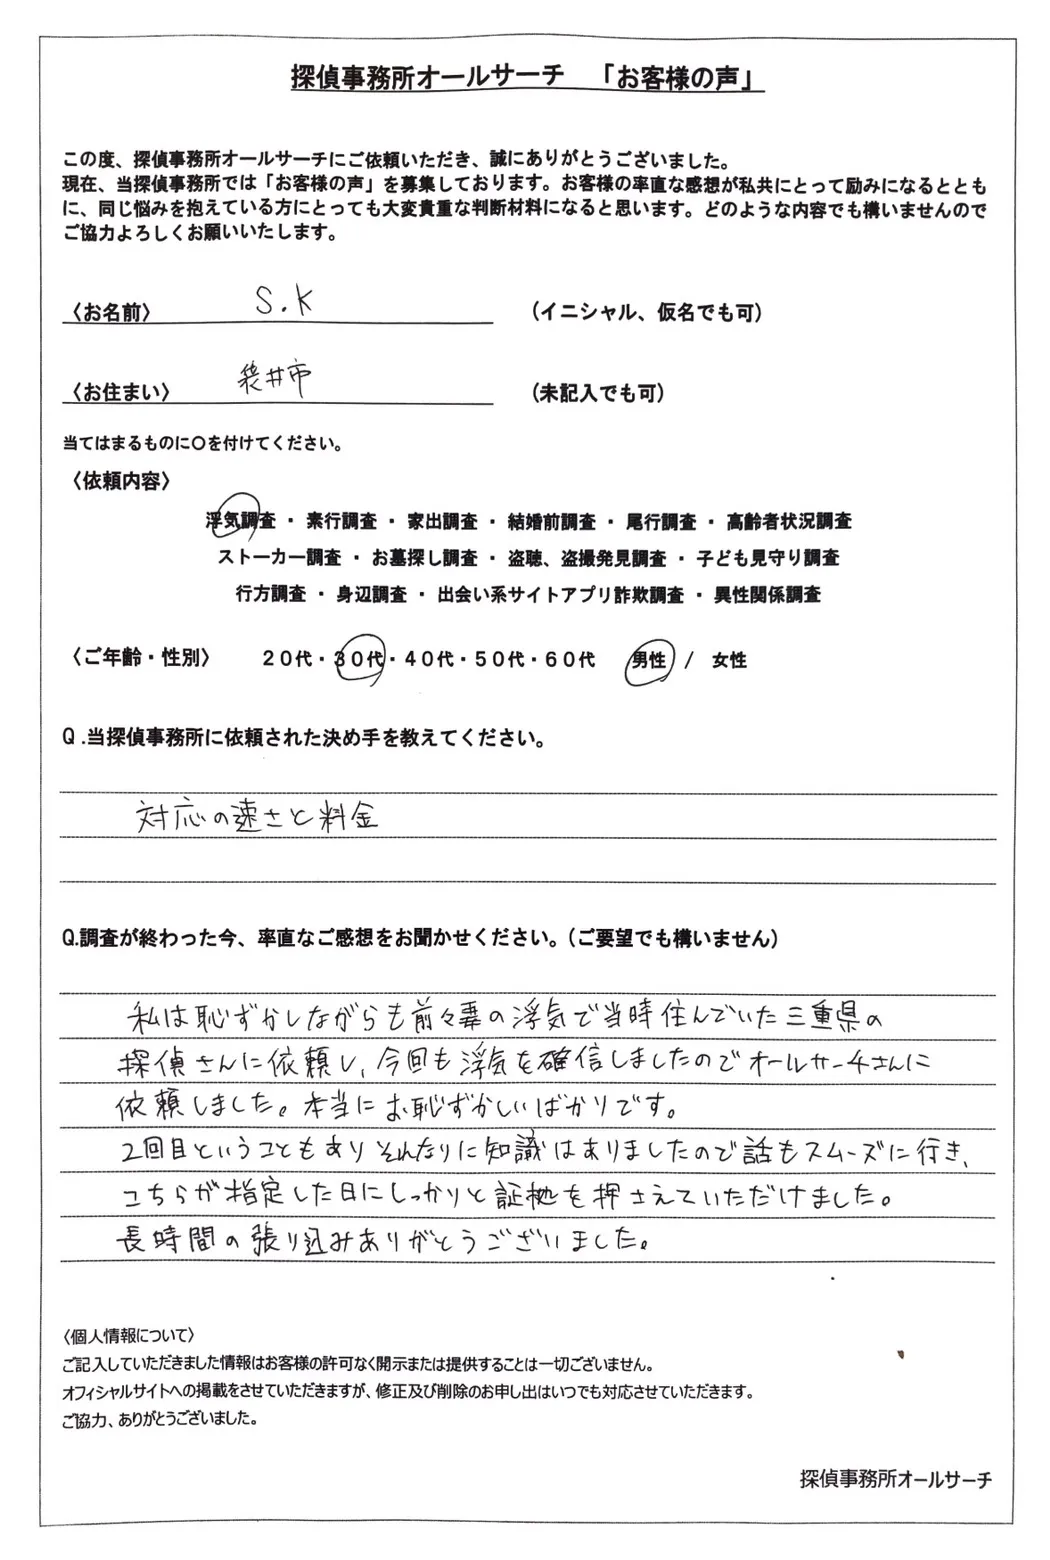 探偵事務所オールサーチ 「お客様の声」
この度、探偵事務所オールサーチにご依頼いただき、誠にありがとうございました。
現在、当探偵事務所では「お客様の声」を募集しております。お客様の率直な感想が私共にとって励みになるととも
に、同じ悩みを抱えている方にとっても大変貴重な判断材料になると思います。どのような内容でも構いませんので
ご協力よろしくお願いいたします。
〈お名前〉 S.K (イニシャル、仮名でも可)
〈お住まい〉 袋井市 (未記入でも可)
当てはまるものに○を付けてください。
〈依頼内容〉
浮気調査 ・ 素行調査 ・ 家出調査 ・ 結婚前調査 ・ 尾行調査 ・ 高齢者状況調査
ストーカー調査 ・ お墓探し調査 ・ 盗聴、盗撮発見調査 ・ 子ども見守り調査
行方調査 ・ 身辺調査 ・ 出会い系サイトアプリ詐欺調査 ・ 異性関係調査
〈ご年齢・性別〉 20代・30代・40代・50代・60代 男性 / 女性
Q.当探偵事務所に依頼された決め手を教えてください。
対応の速さと料金
Q.調査が終わった今、率直なご感想をお聞かせください。(ご要望でも構いません)
私は恥ずかしながらも前々妻の浮気で当時住んでいた三重県の
探偵さんに依頼し、今回も浮気を確信しましたのでオールサーチさんに
依頼しました。本当にお恥ずかしいばかりです。
2回目ということもありそれなりに知識はありましたので話もスムーズに行き、
こちらが指定した日にしっかりと証拠を押さえていただけました。
長時間の張り込みありがとうございました。
〈個人情報について〉
ご記入していただきました情報はお客様の許可なく開示または提供することは一切ございません。
オフィシャルサイトへの掲載をさせていただきますが、修正及び削除のお申し出はいつでも対応させていただきます。
ご協力、ありがとうございました。
探偵事務所オールサーチ